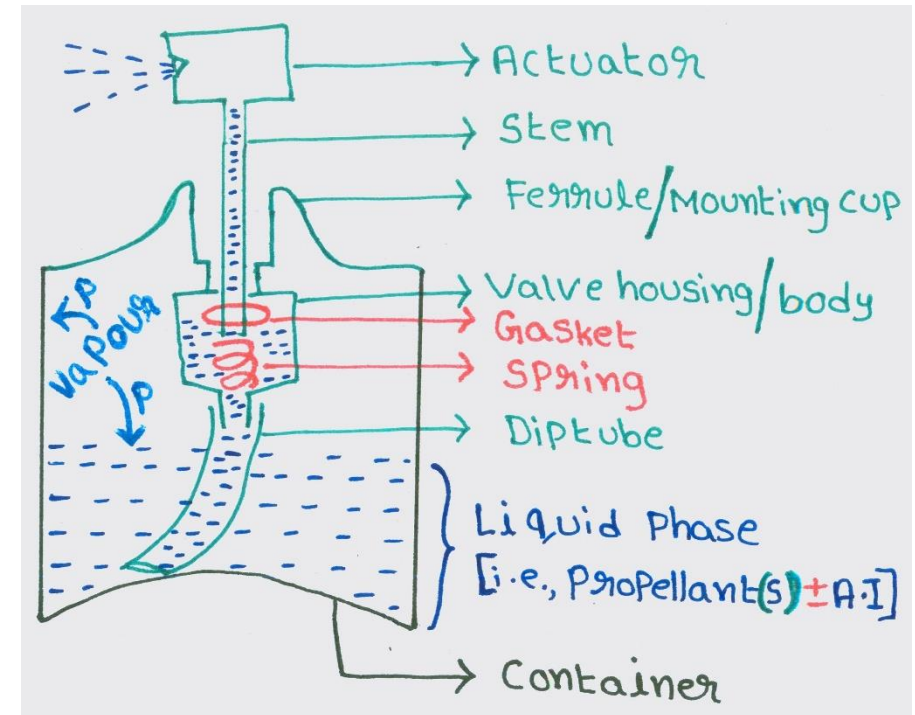 Actuator
Stem
Ferrule/Mounting cup
Valve housing/body
Gasket
Spring
Diptube
P
vapour
P
Liquid Phase
[i.e., Propellant(s) ± A.I]
Container